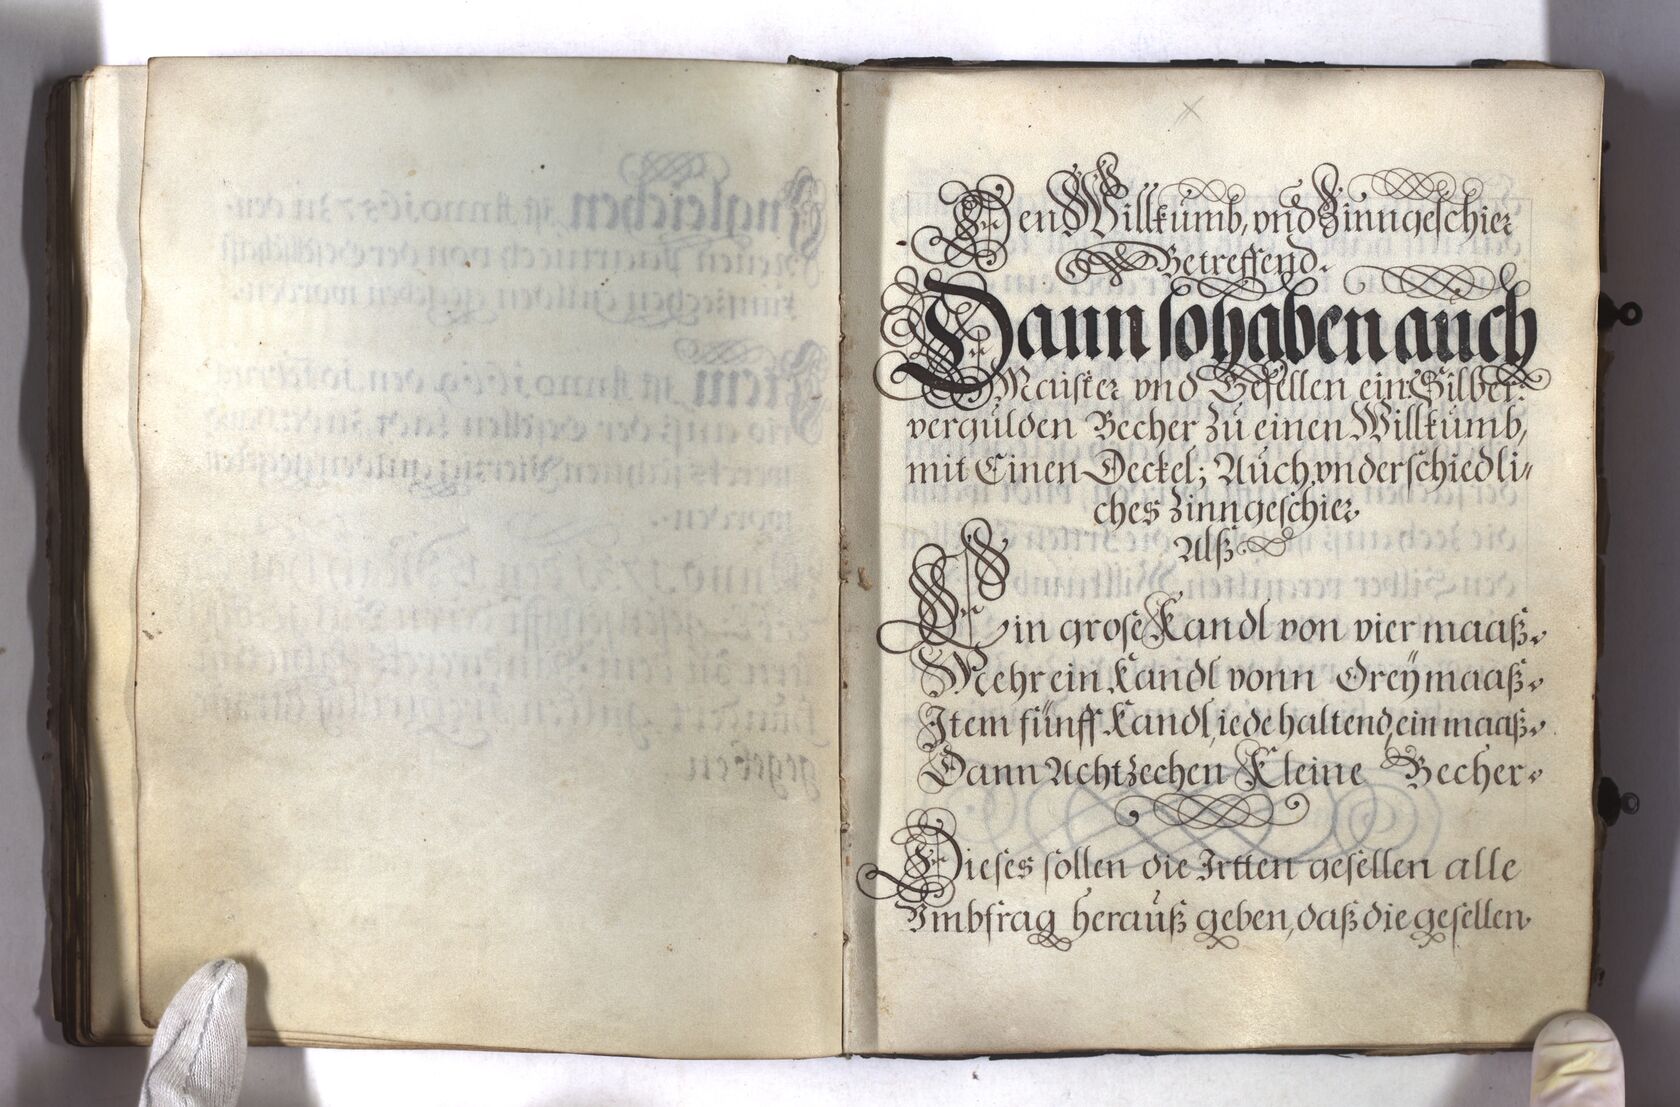 Den Willkumb, vnd Zinngeschier
Betreffend.
Dann so haben auch
Meister vnd Gesellen ein Silber
vergülden Becher Zu einen Willkumb,
mit Einen Deckel; Auch vnderschiedli„
ches Zinngeschier
Alß
Ein grose Kandl von vier maaß.
Mehr ein Kandl vonn Dreÿ maaß.
Item fünff Kandl, iede haltend, ein maaß.
Dann Achtzechen Kleine Becher.
Dieses sollen die Irtten gesellen alle
Vmbfrag herauß geben, daß die gesellen